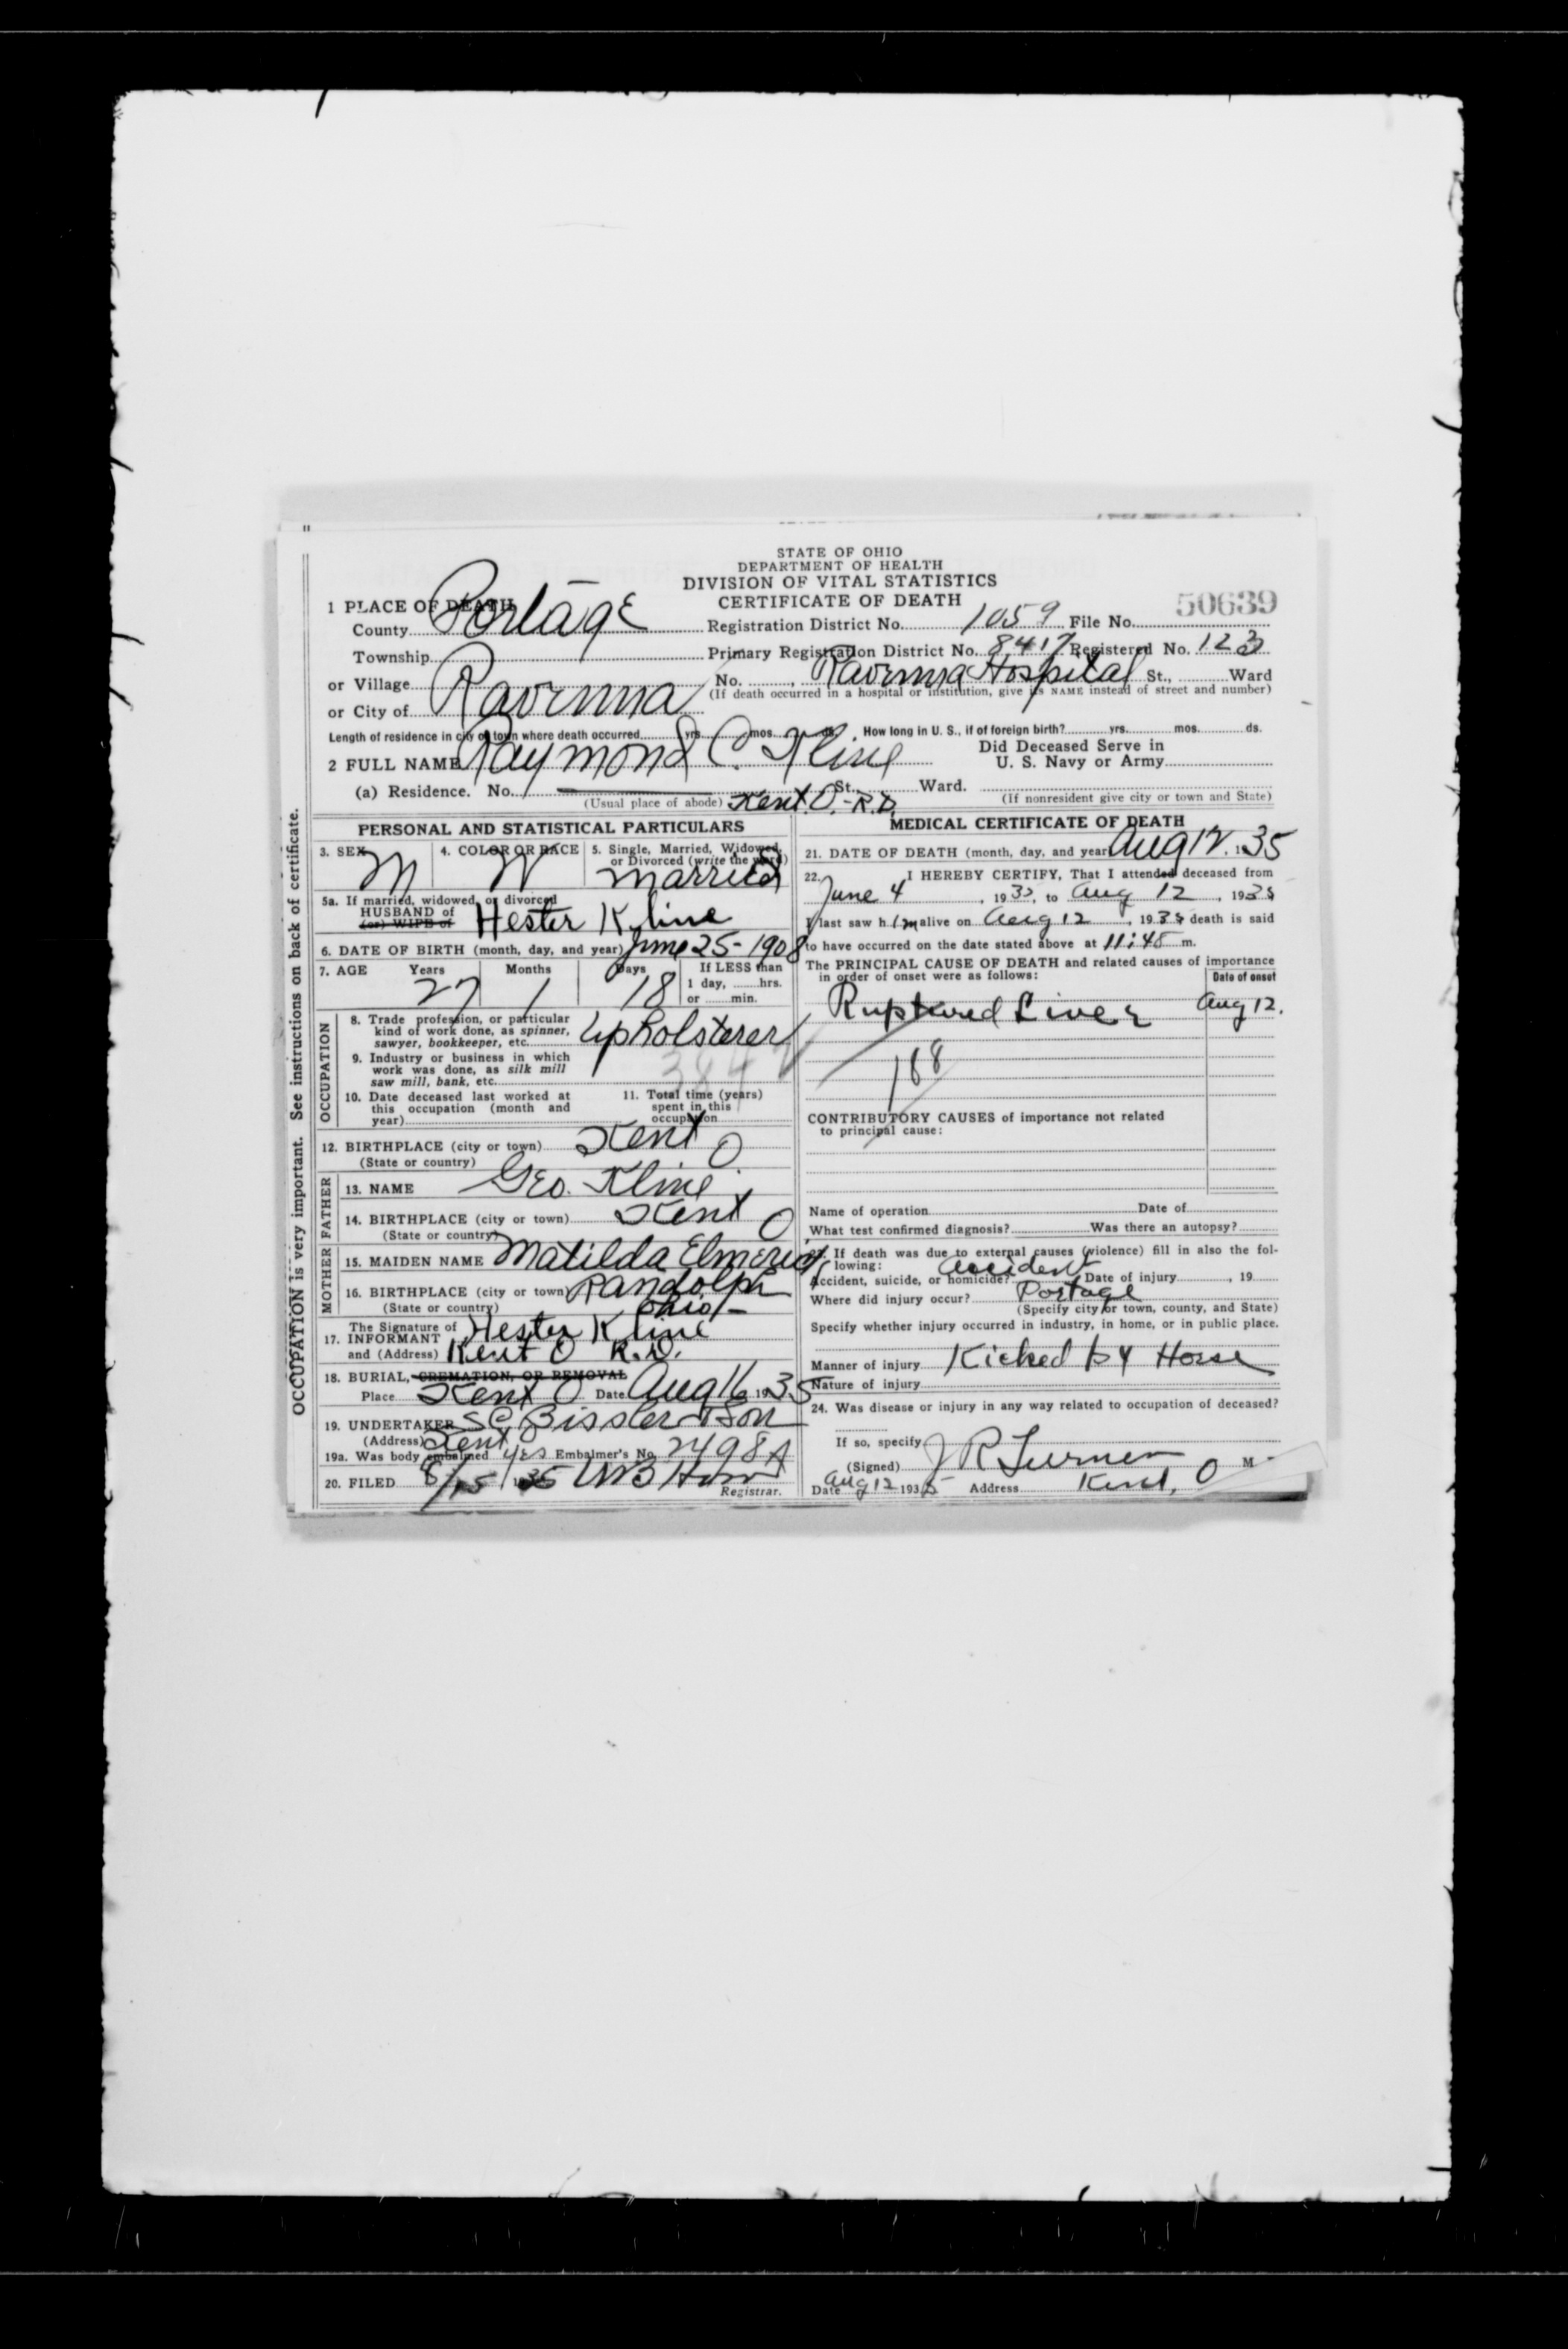 STATE OF OHIO
DEPARTMENT OF HEALTH
DIVISION OF VITAL STATISTICS
CERTIFICATE OF DEATH
50639
1 PLACE OF DEATH
County Portage Registration District No. 1059 File No.
Township Primary Registration District No. 8417 Registered No. 123
or Village No. , Ravenna Hospital St., Ward
(If death occurred in a hospital or institution, give its NAME instead of street and number)
or City of Ravenna
Length of residence in city or town where death occurred yrs. mos. ds. How long in U. S., if of foreign birth? yrs. mos. ds.
2 FULL NAME Raymond C. Kline Did Deceased Serve in U. S. Navy or Army
(a) Residence. No. St. Ward.
(Usual place of abode) Kent. O. - R.D. (If nonresident give city or town and State)
PERSONAL AND STATISTICAL PARTICULARS
3. SEX M 4. COLOR OR RACE W 5. Single, Married, Widowed, or Divorced (write the word) married
5a. If married, widowed, or divorced
HUSBAND of Hester Kline
(or) WIFE of
6. DATE OF BIRTH (month, day, and year) June 25 - 1908
7. AGE Years 27 Months 1 Days 18 If LESS than 1 day, hrs. or min.
OCCUPATION
8. Trade profession, or particular kind of work done, as spinner, sawyer, bookkeeper, etc. Upholsterer
9. Industry or business in which work was done, as silk mill saw mill, bank, etc.
10. Date deceased last worked at this occupation (month and year)
11. Total time (years) spent in this occupation
12. BIRTHPLACE (city or town) Kent O.
(State or country)
FATHER
13. NAME Geo. Kline
14. BIRTHPLACE (city or town) Kent O
(State or country)
MOTHER
15. MAIDEN NAME Matilda
16. BIRTHPLACE (city or town) Randolph
(State or country) Ohio -
17. The Signature of INFORMANT Hester Kline
and (Address) Kent O R.D.
18. BURIAL, CREMATION, OR REMOVAL
Place Kent O Date Aug 16 1935
19. UNDERTAKER S C Bissler & Son
(Address) Kent O
19a. Was body embalmed yes Embalmer's No. 2498A
20. FILED 8/15 1935 Registrar.
MEDICAL CERTIFICATE OF DEATH
21. DATE OF DEATH (month, day, and year) Aug 12. 1935
22. I HEREBY CERTIFY, That I attended deceased from
June 4, 1935, to Aug 12, 1935
I last saw him alive on Aug 12, 1935 death is said
to have occurred on the date stated above at 11:45 m.
The PRINCIPAL CAUSE OF DEATH and related causes of importance in order of onset were as follows:
Date of onset
Ruptured Liver Aug 12.
188
CONTRIBUTORY CAUSES of importance not related to principal cause:
Name of operation Date of
What test confirmed diagnosis? Was there an autopsy?
23. If death was due to external causes (violence) fill in also the following:
Accident, suicide, or homicide? Accident Date of injury , 19
Where did injury occur? Portage
(Specify city or town, county, and State)
Specify whether injury occurred in industry, in home, or in public place.
Manner of injury Kicked by Horse
Nature of injury
24. Was disease or injury in any way related to occupation of deceased?
If so, specify
(Signed) J R Turner M
Date Aug 12 1935 Address Kent, O
OCCUPATION is very important. See instructions on back of certificate.